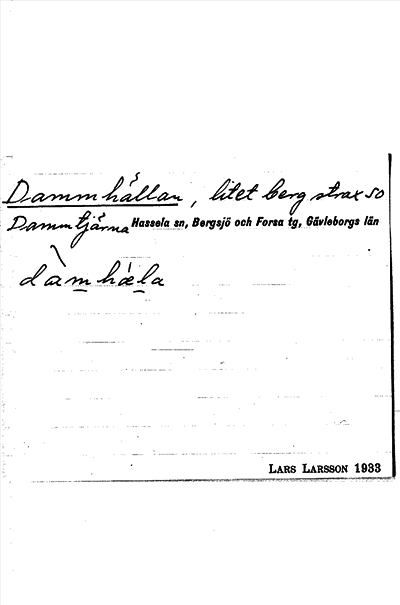 Dammhällan, litet berg strax so
Dammtjärna Hassela sn, Bergsjö och Forsa tg, Gävleborgs län
dàmhæ̀la
LARS LARSSON 1933